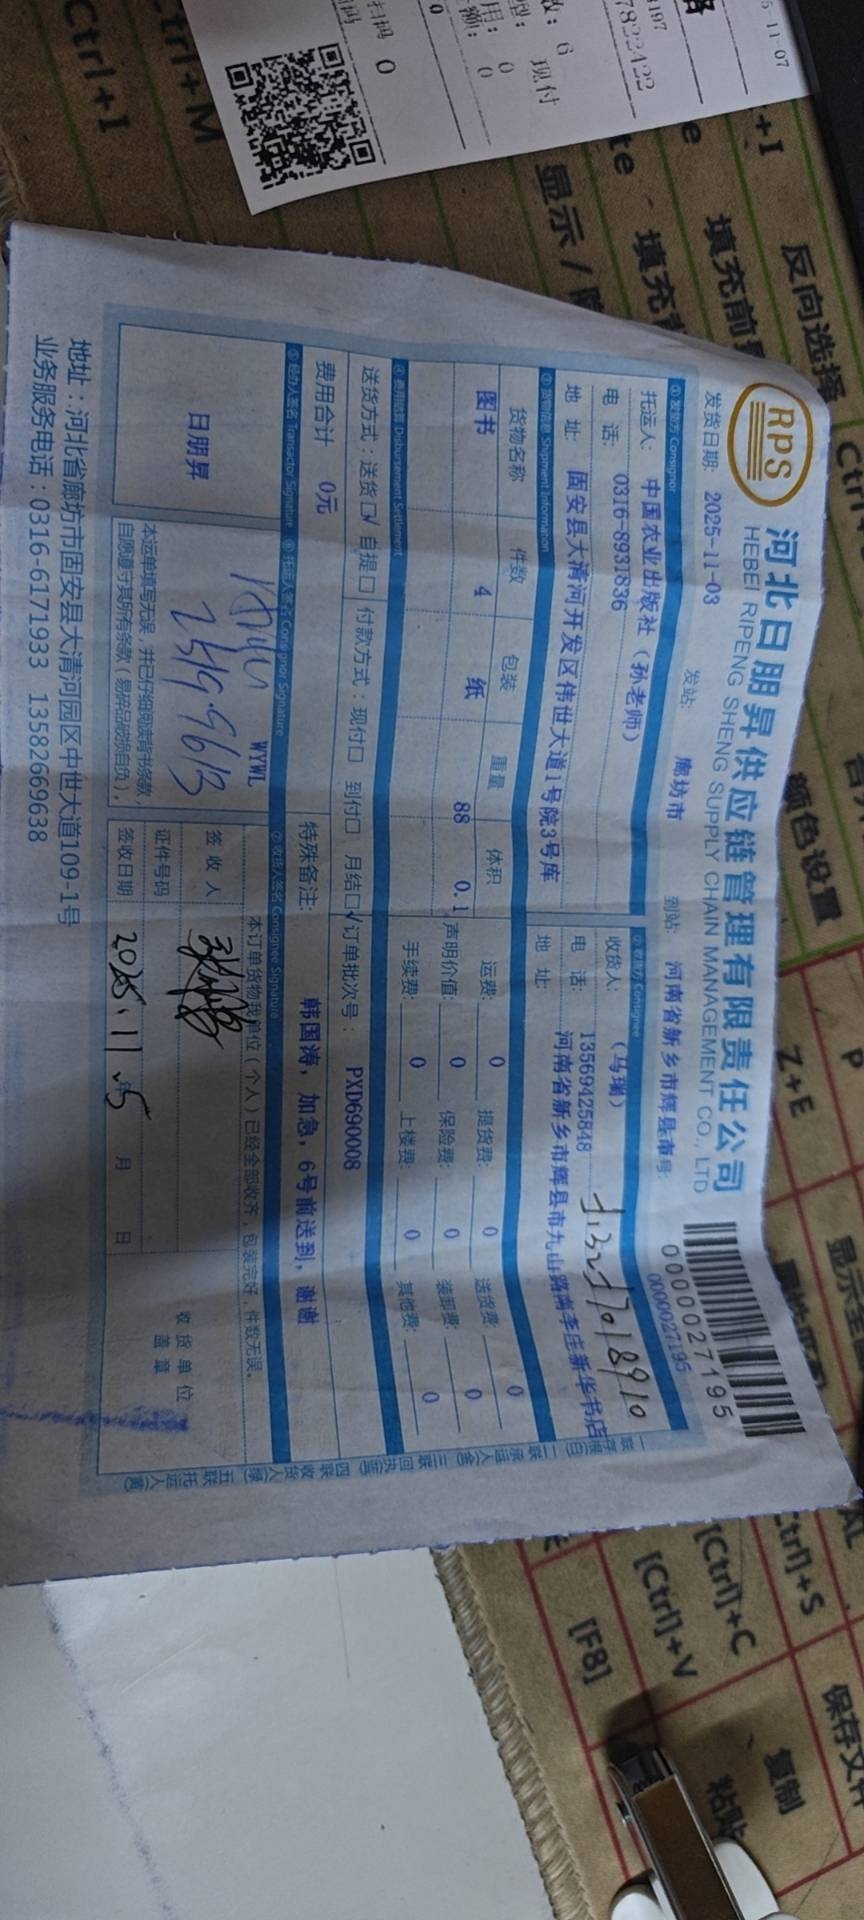 RPS
河北日朋昇供应链管理有限责任公司
HEBEI RIPENG SHENG SUPPLY CHAIN MANAGEMENT CO., LTD
0000027195
0000027195
发货日期: 2025-11-03 发站: 廊坊市 到站: 河南省新乡市辉县市 号:
①发货方 Consignor
托运人: 中国农业出版社 (孙老师)
电 话: 0316-8931836
地 址: 固安县大清河开发区伟世大道1号院3号库
②收货方 Consignee
收货人: (马瑞)
电 话: 13569425848
地 址: 河南省新乡市辉县市九山路南李庄新华书店
③货物信息 Shipment Information
货物名称 件数 包装 重量 体积
图书 4 纸 88 0.1
运费: 0 提货费: 0 送货费: 0
声明价值: 0 保险费: 0 装卸费: 0
手续费: 0 上楼费: 0 其他费: 0
④费用结算 Disbursement Settlement
送货方式: 送货☑ 自提□ 付款方式: 现付□ 到付□ 月结☑ 订单批次号: PXD690008
费用合计 0元
特殊备注: 韩国涛, 加急, 6号前送到, 谢谢
⑤经办人签名 Transactor Signature
日朋昇
⑥托运人签名 Consignor Signature
WYWL
本运单填写无误, 并已仔细阅读背书条款,
自愿遵守其所有条款(易碎品破损自负)。
⑦收货人签名 Consignee Signature
本订单货物我单位(个人)已经全部收齐, 包装完好, 件数无误。
签 收 人
证件号码
签收日期 2025.11.5 年 月 日
收货单位
盖 章
地址:河北省廊坊市固安县大清河园区中世大道109-1号
业务服务电话:0316-6171933 13582669638
一联存根(白) 二联承运人(金) 三联回执(蓝) 四联收货人(绿) 五联托运人(黄)
6 现付
0
0
反向选择
填充前景
显示/
Ctrl+I
Z+E
颜色设置
[F8]
[Ctrl]+V
[Ctrl]+C
复制
粘贴
保存文件